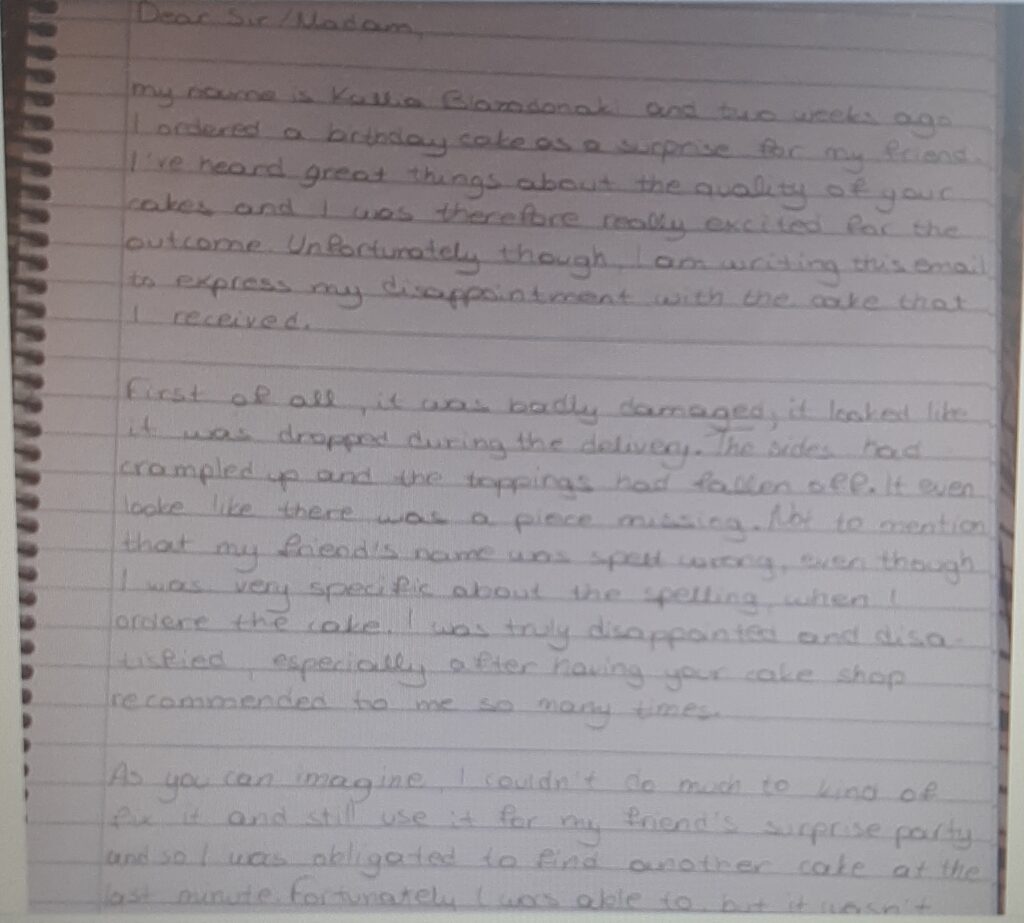 Dear Sir/Madam,
my name is Kallia and two weeks ago
I ordered a birthday cake as a surprise for my friend.
I've heard great things about the quality of your
cakes and I was therefore really excited for the
outcome. Unfortunately though, I am writing this email
to express my disappointment with the cake that
I received.
First of all, it was badly damaged, it looked like
it was dropped during the delivery. The sides had
crampled up and the toppings had fallen off. It even
looke like there was a piece missing. Not to mention
that my friend's name was spelt wrong, even though
I was very specific about the spelling, when I
ordere the cake. I was truly disappointed and disa-
tisfied, especially after having your cake shop
recommended to me so many times.
As you can imagine, I couldn't do much to kind of
fix it and still use it for my friend's surprise party
and so I was obligated to find another cake at the
last minute. Fortunately I was able to but it wasn't